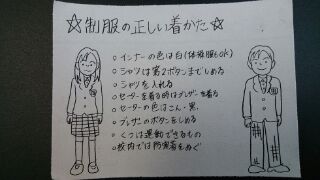 ☆制服の正しい着かた☆
○インナーの色は白(体操服もok)
○シャツは第2ボタンまでしめる
○シャツを入れる
○セーターを着る時はブレザーを着る
○セーターの色はこん・黒
○ブレザーのボタンをしめる
○くつは運動できるもの
○校内では防寒着をぬぐ